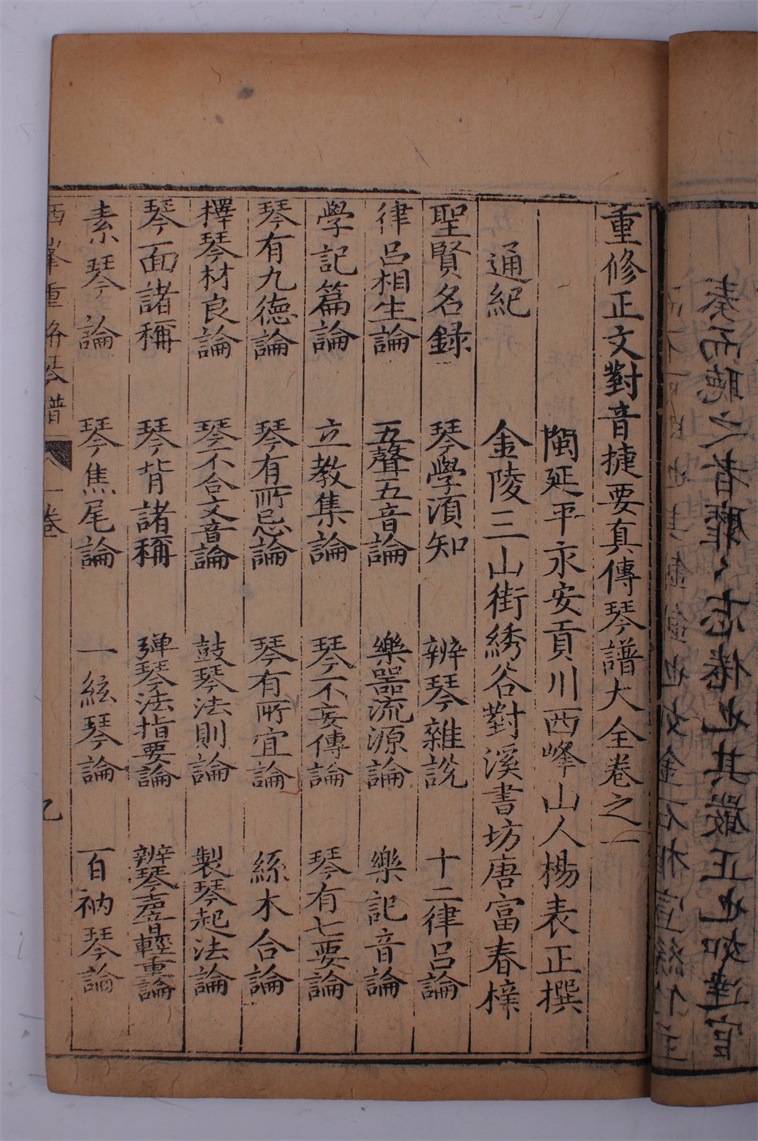 重修正文對音捷要真傳琴譜大全卷之一
閩延平永安貢川西峰山人楊表正撰
金陵三山街綉谷對溪書坊唐富春梓
通紀
聖賢名錄 琴學須知 辨琴雜說 十二律呂論
律呂相生論 五聲五音論 樂器流源論 樂記音論
學記篇論 立教集論 琴不妄傳論 琴有七要論
琴有九德論 琴有所忌論 琴有所宜論 絲木合論
擇琴材良論 琴不合文音論 鼓琴法則論 製琴起法論
琴面諸稱 琴背諸稱 彈琴法指要論 辨琴聲音輕重論
素琴論 琴焦尾論 一絃琴論 百衲琴論
重脩琴譜 一卷
奏而聽之者靡〻忘倦也其嚴正也如達官